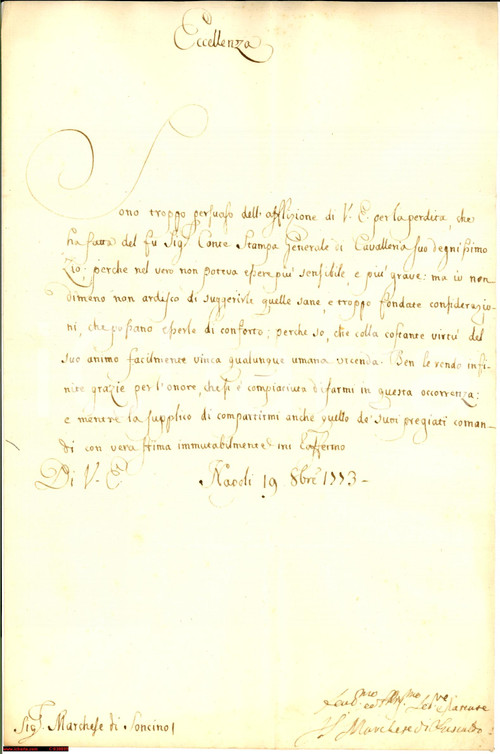 Eccellenza
Sono troppo persuaso dell'afflizione di V. E. per la perdita, che
ha fatta del fù Sigr Conte Stampa Generale di Cavalleria suo degnissimo
Zio: perche nel vero non poteva essere più sensibile, e più grave: ma io non
dimeno non ardisco di suggerirle quelle sane, e troppo fondate considerazio-
ni, che possano esserle di conforto; perche so, che colla costante virtù del
suo animo facilmente vinca qualunque umana vicenda. Ben le rendo infi-
nite grazie per l'onore, che si è compiaciuta di farmi in questa occorrenza:
e mentre la supplico di compartirmi anche quello de' suoi pregiati coman-
di con vera stima immutabilmente mi raffermo
Di V. E.
Napoli 19 8bre 1773 -
Sigr Marchese di Soncino
Il Marchese di